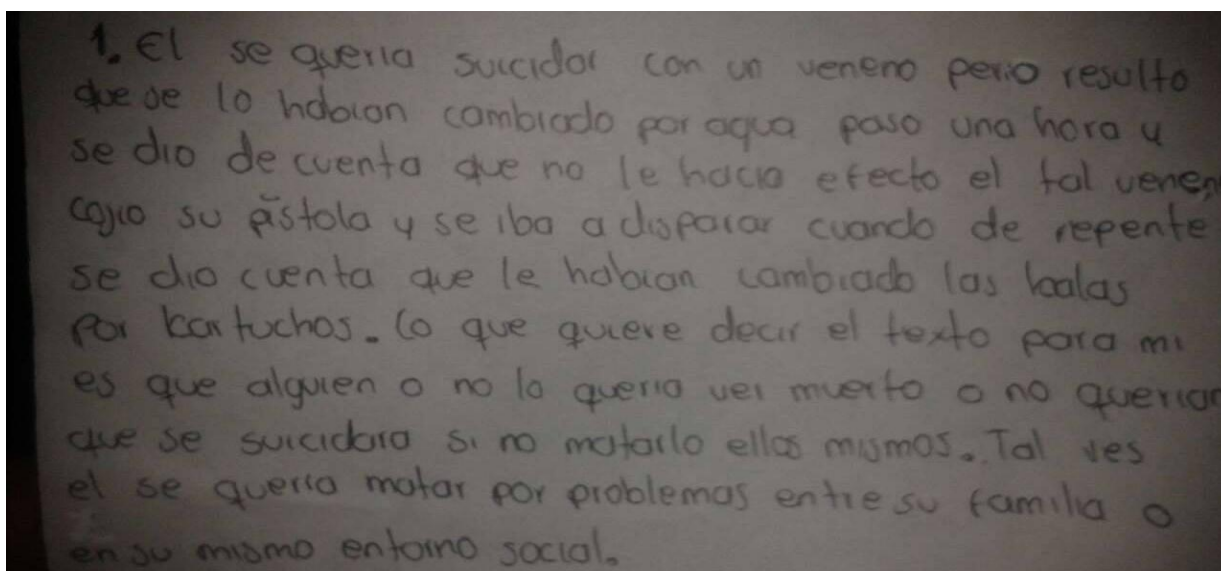 1. El se queria suicidar con un veneno perio resulto
que se lo habian cambiado por agua paso una hora y
se dio de cuenta que no le hacia efecto el tal veneno
cojio su pistola y se iba a disparar cuando de repente
se dio cuenta que le habian cambiado las balas
por kartuchos. Lo que quiere decir el texto para mi
es que alguien o no lo queria ver muerto o no querian
que se suicidara si no matarlo ellos mismos. Tal ves
el se queria matar por problemas entre su familia o
en su mismo entorno social.